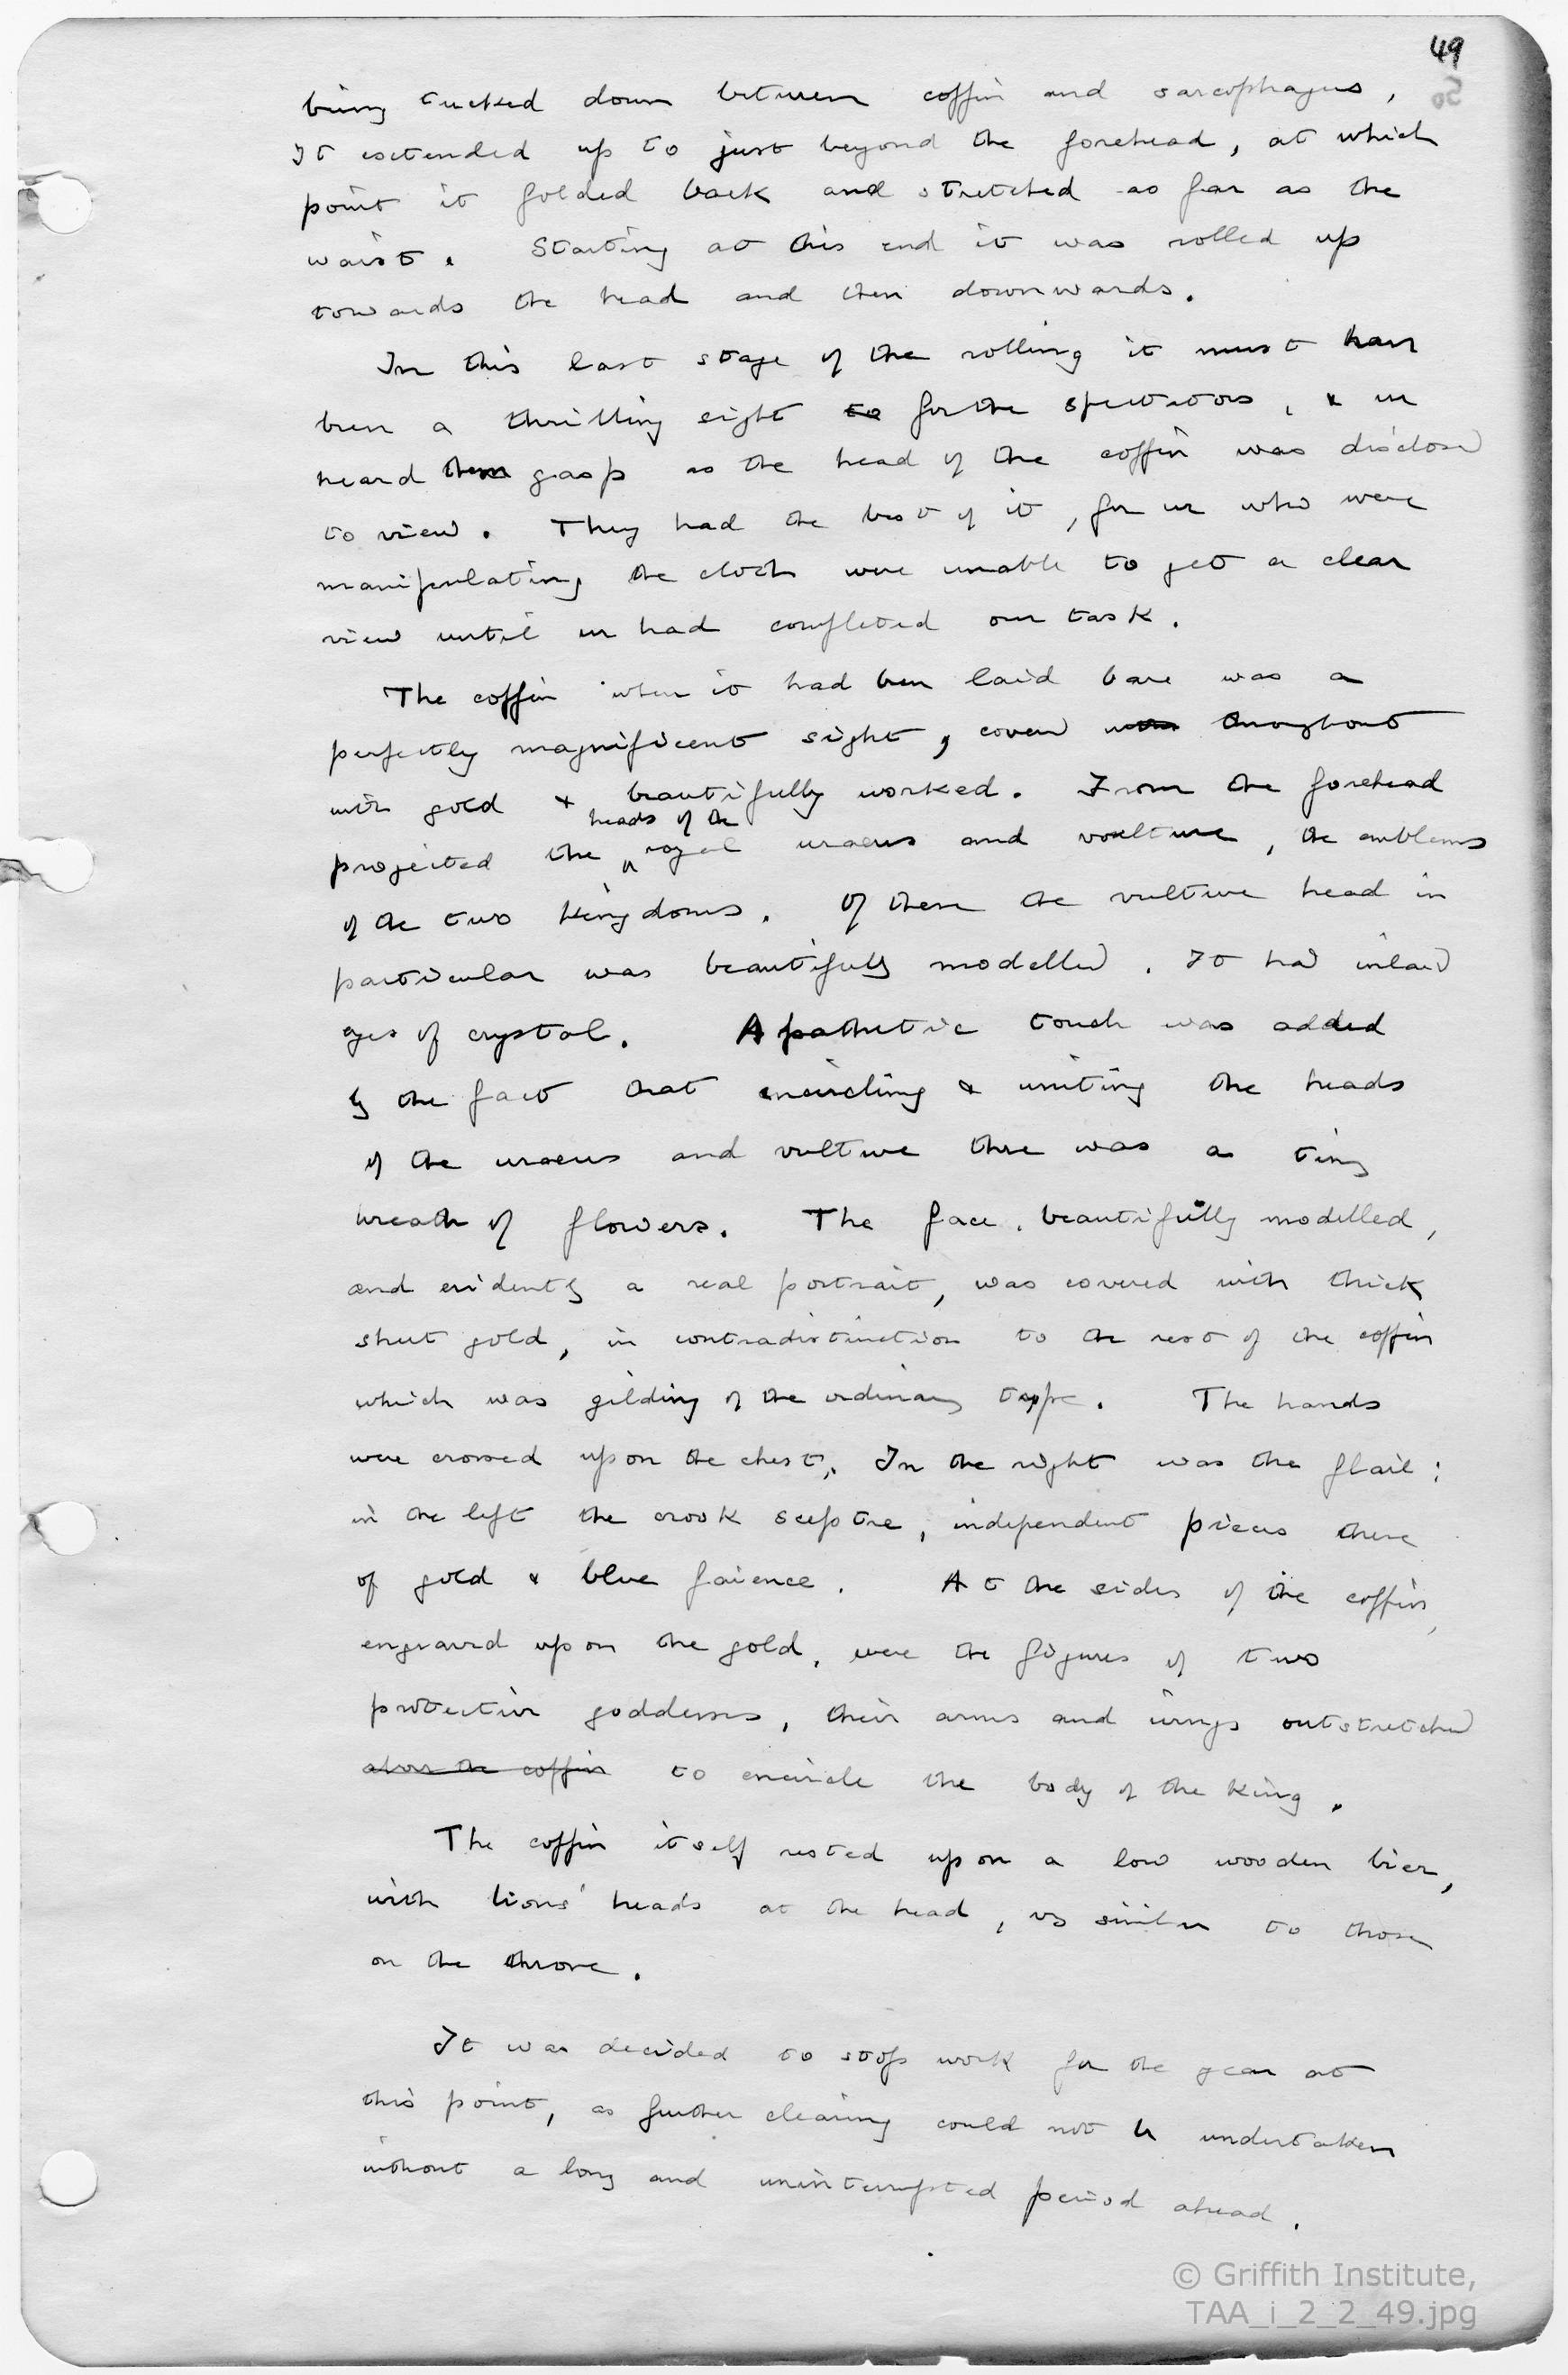 49
50
being tucked down between coffin and sarcophagus,
It extended up to just beyond the forehead, at which
point it folded back and stretched as far as the
waist. Starting at this end it was rolled up
towards the head and then downwards.
In this last stage of the rolling it must have
been a thrilling sight to for the spectators, & we
heard them gasp as the head of the coffin was disclosed
to view. They had the best of it, for we who were
manipulating the cloth were unable to get a clear
view until we had completed our task.
The coffin when it had been laid bare was a
perfectly magnificent sight, covered with throughout
with gold & beautifully worked. From the forehead
heads of the
projected the royal uraeus and voulture, the emblems
of the two kingdoms. Of these the vulture head in
particular was beautifully modelled. It had inlaid
eyes of crystal. A pathetic touch was added
by the fact that encircling & uniting the heads
of the uraeus and vulture there was a tiny
wreath of flowers. The face, beautifully modelled,
and evidently a real portrait, was covered with thick
sheet gold, in contradistinction to the rest of the coffin
which was gilding of the ordinary type. The hands
were crossed upon the chest. In the right was the flail:
in the left the crook sceptre, independent pieces these
of gold & blue faience. At the sides of the coffin,
engraved upon the gold, were the figures of two
protective goddesses, their arms and wings outstretched
above the coffin to encircle the body of the king.
The coffin itself rested upon a low wooden bier,
with lions' heads at the head, vy similar to those
on the throne.
It was decided to stop work for the year at
this point, as further clearing could not be undertaken
without a long and uninterrupted period ahead.
© Griffith Institute,
TAA_i_2_2_49.jpg